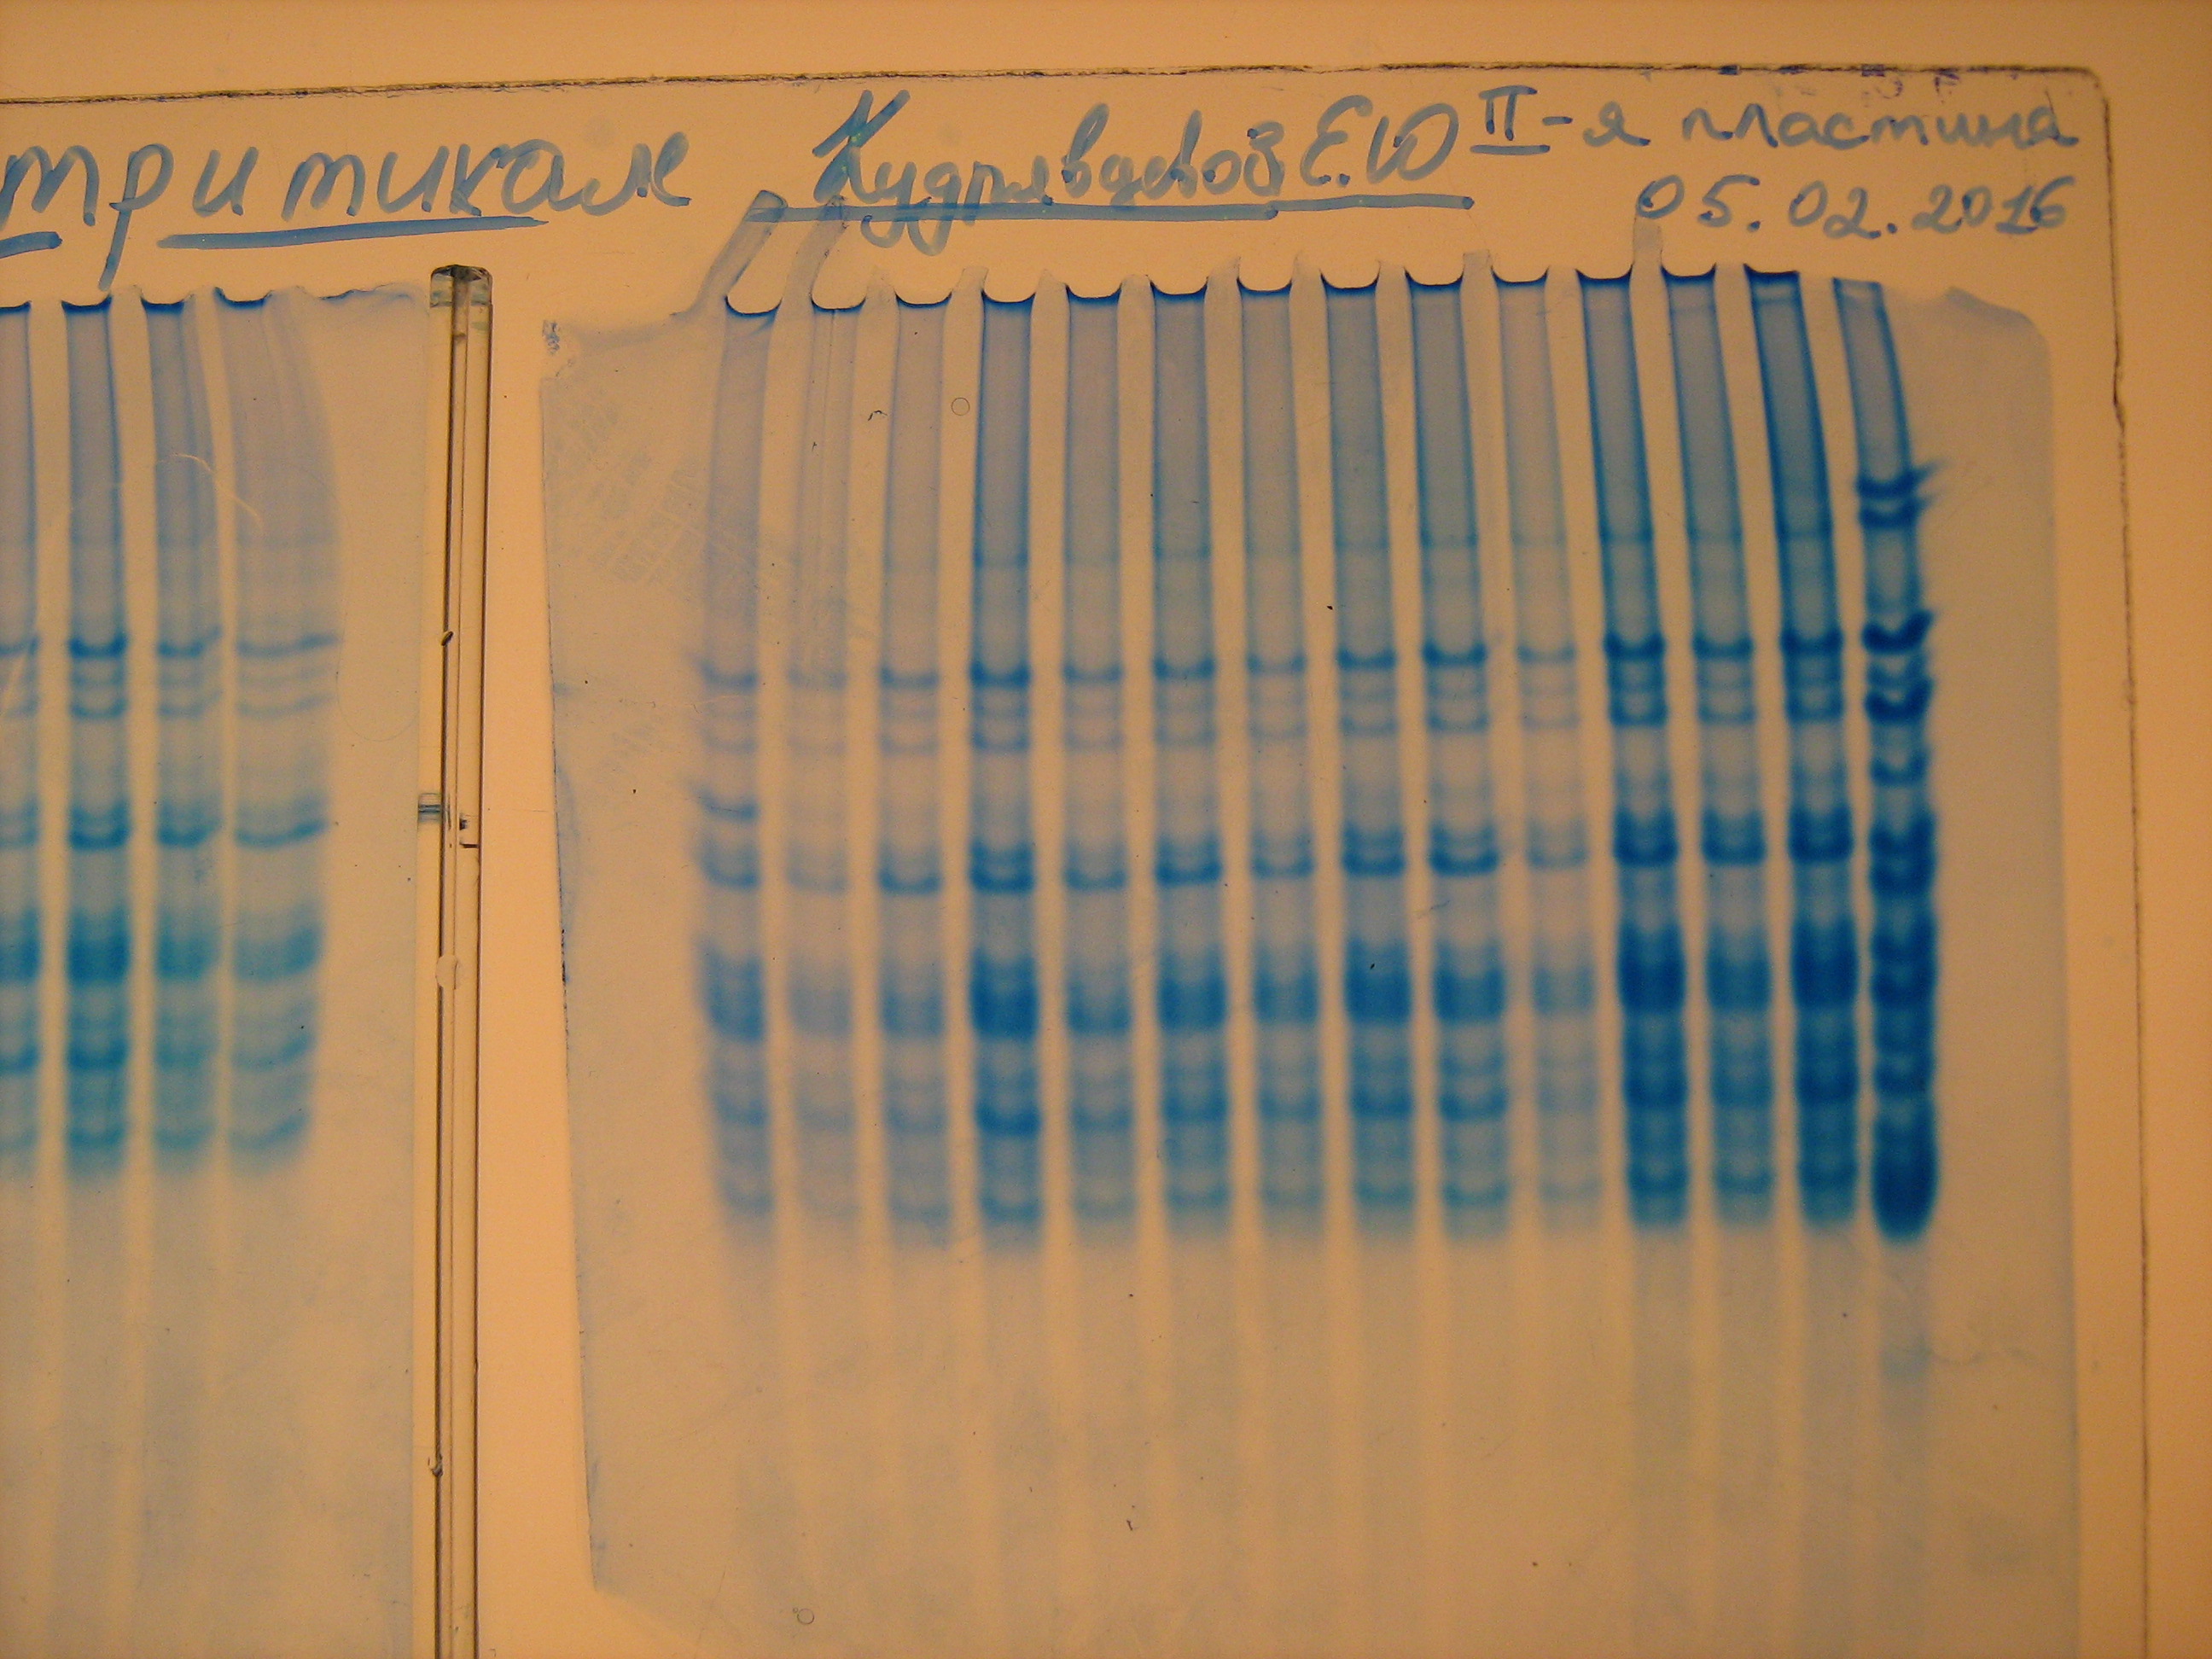 тритикале Кудрявцевой Е.Ю II-я пластина
05.02.2016